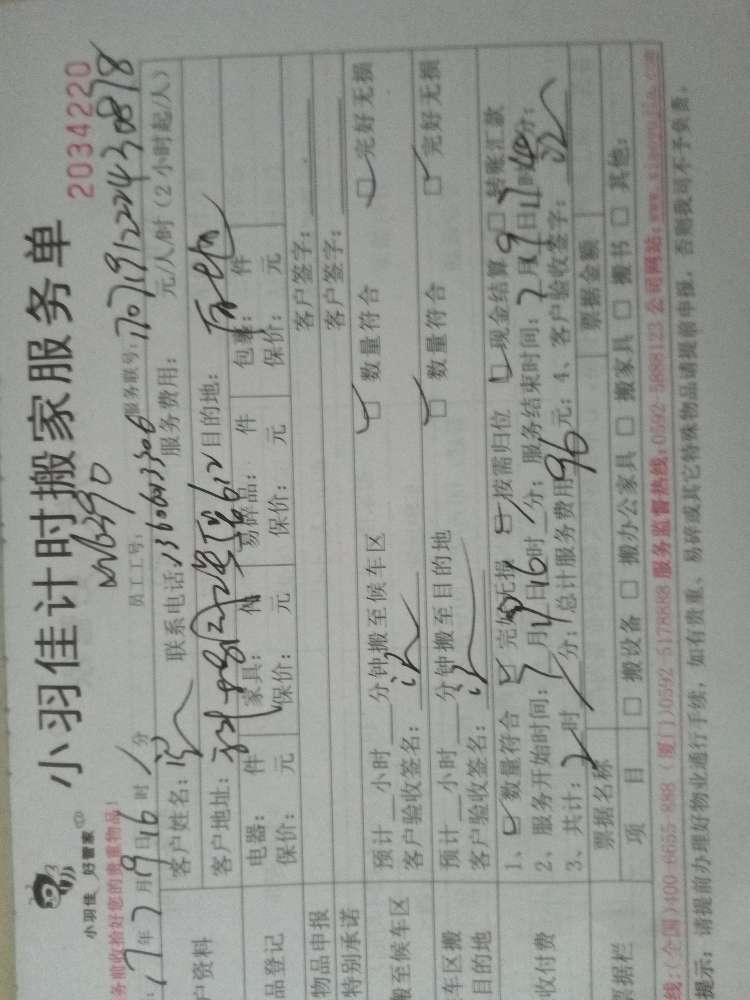 小羽佳 好管家
小羽佳计时搬家服务单
2034220
务前收拾好您的贵重物品！
17年7月9日16时 分
员工工号：
服务联号：170719122430878
户资料
客户姓名：
联系电话：
服务费用： 元/人/时（2小时起/人）
客户地址：
目的地：
品登记
电器： 件 家具： 件 易碎品： 件 包裹： 件
保价： 元 保价： 元 保价： 元 保价： 元
物品申报
客户签字：
特别承诺
客户签字：
搬至候车区
预计 小时 分钟搬至候车区 数量符合 完好无损
客户验收签名：
车区搬
目的地
预计 小时 分钟搬至目的地 数量符合 完好无损
客户验收签名：
收付费
1、 数量符合 完好无损 按需归位 现金结算 转账汇款
2、服务开始时间：7月9日16时 分；服务结束时间：7月9日17时 分；
3、共计：2时 分；总计服务费用96元；4、客户验收签字：
票据栏
票据名称 票据金额
项 目 搬设备 搬办公家具 搬家具 搬书 其他：
线：(全国)400-6655-888 (厦门)0592 5178888 服务监督热线：0592-5888123 公司网站：
提示：请提前办理好物业通行手续，如有贵重、易碎或其它特殊物品请提前申报，否则我司不予负责。